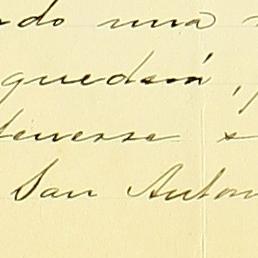 do una
quedará,
tenerse s
San Anton